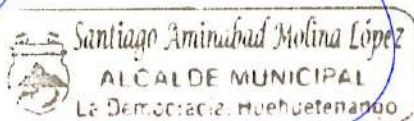 Santiago Aminabad Molina López
ALCALDE MUNICIPAL
La Democracia, Huehuetenango